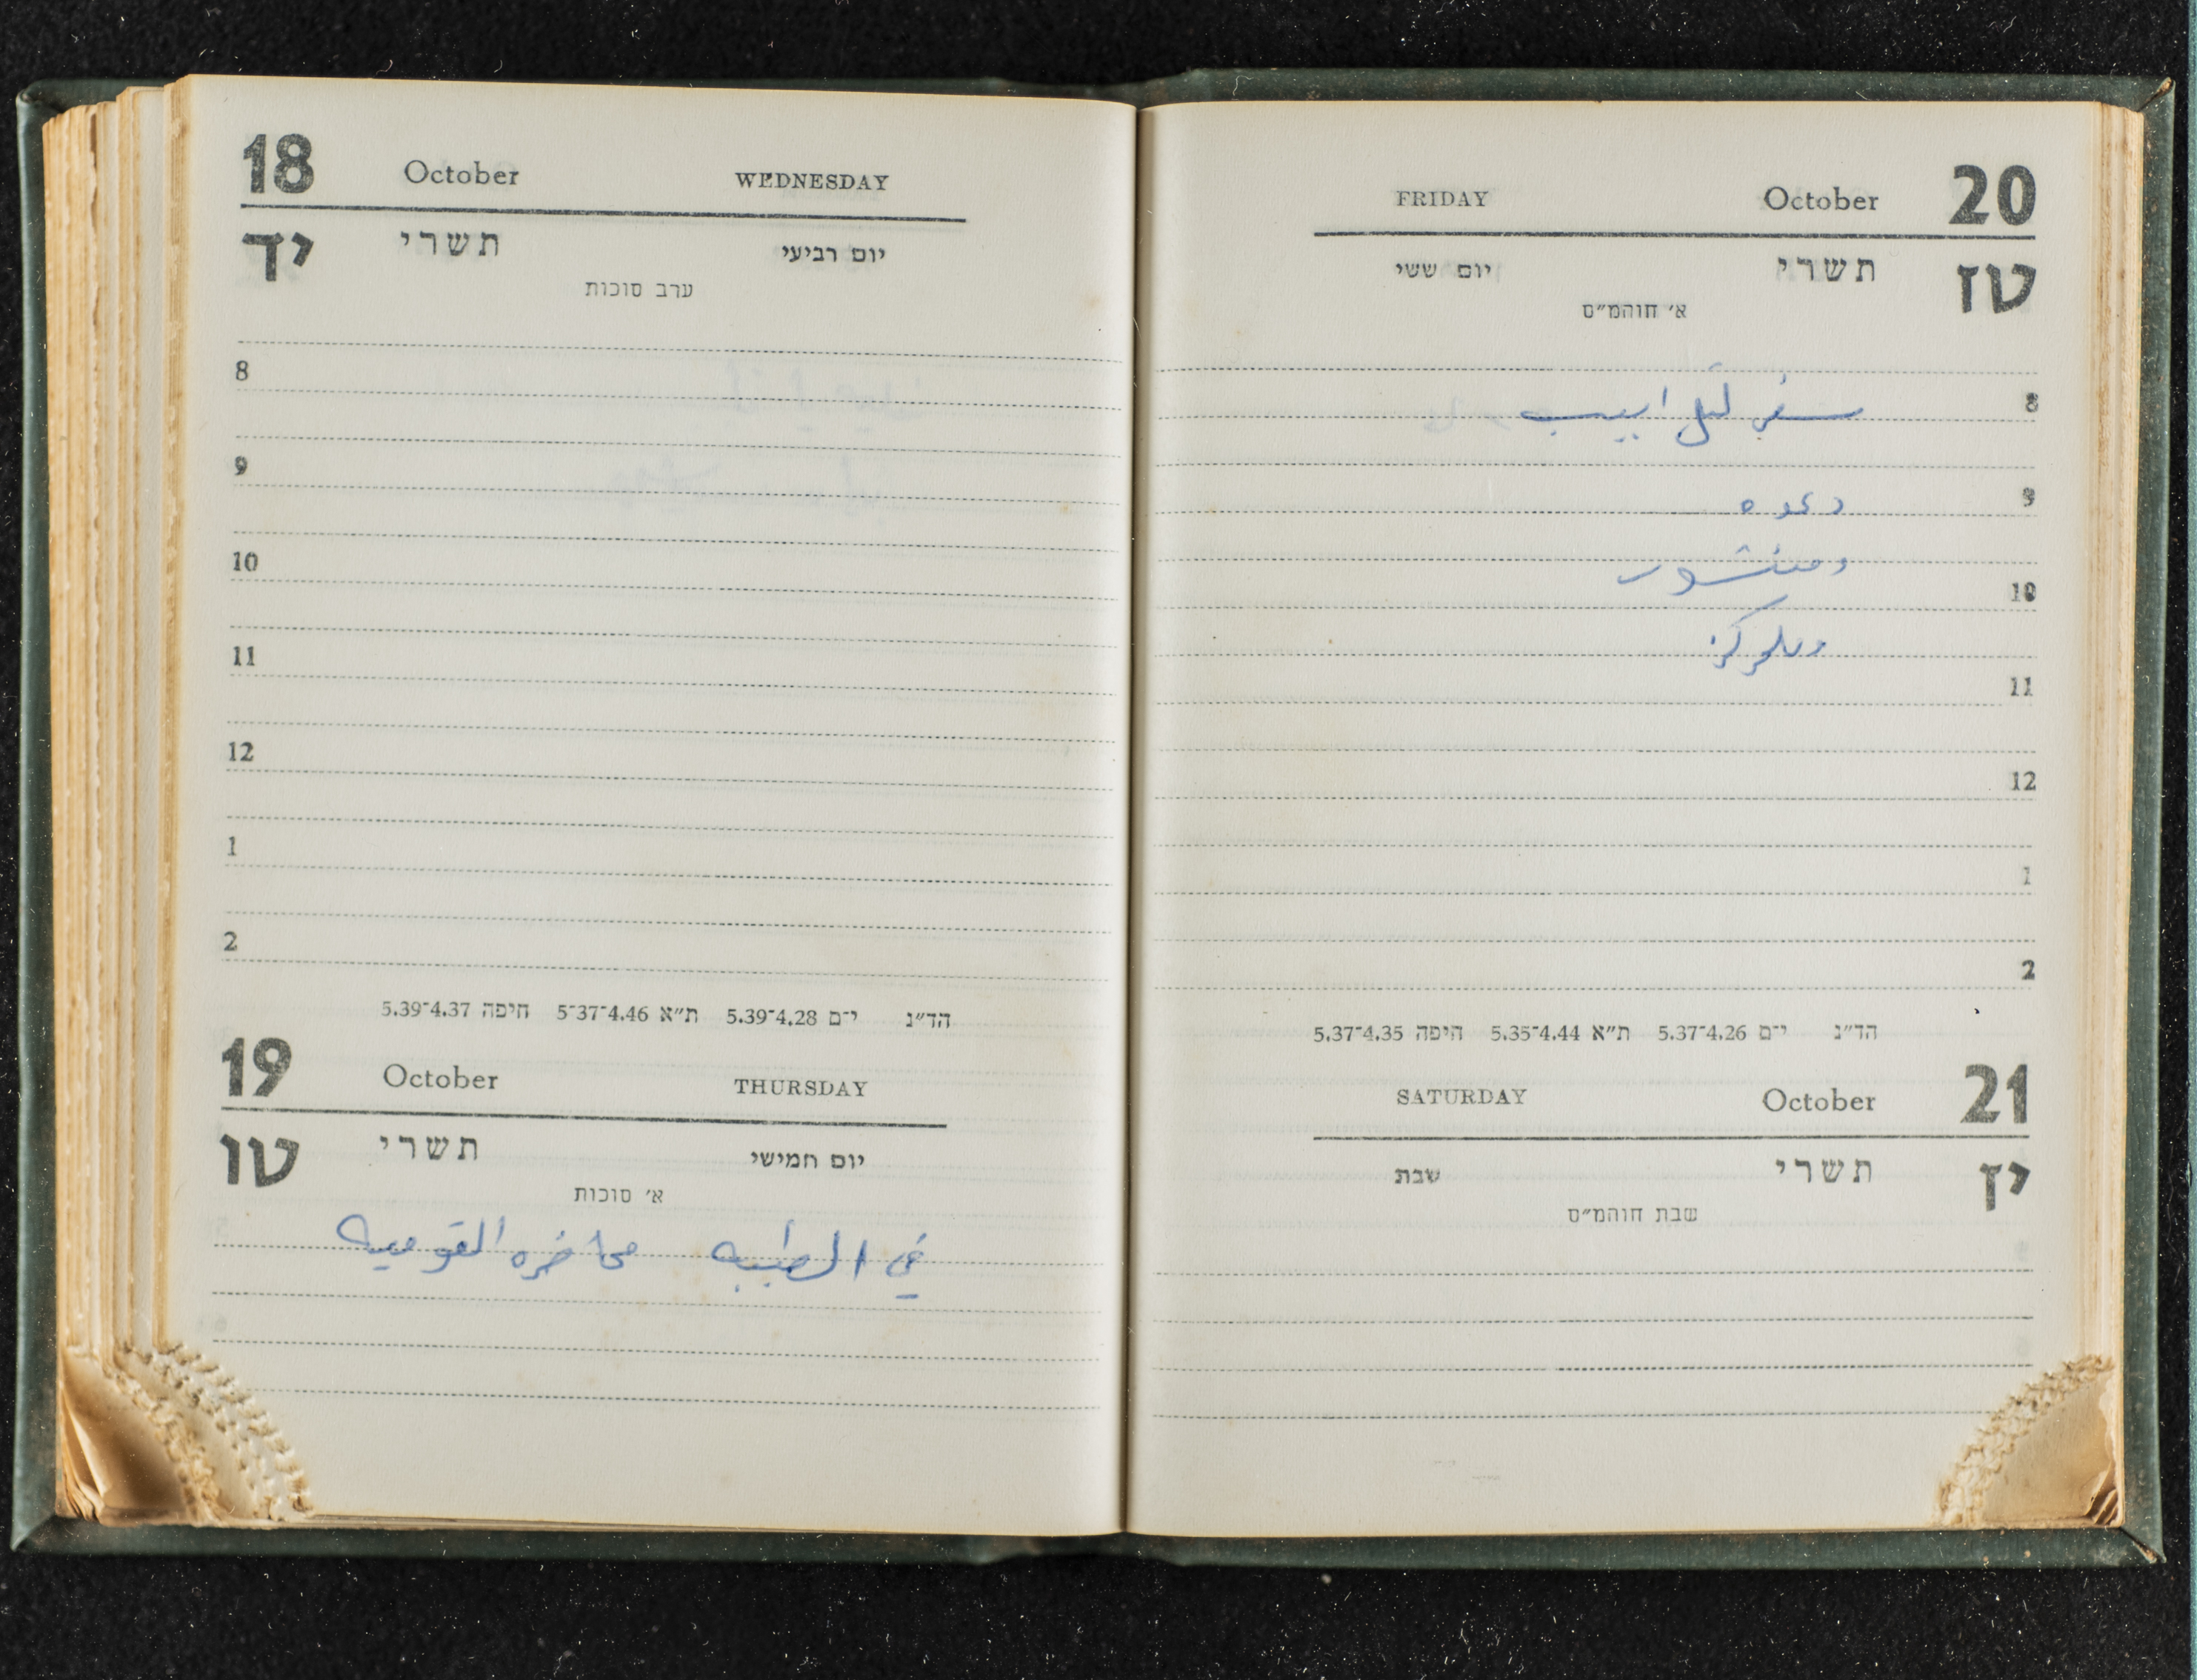 18 October WEDNESDAY
יד תשרי יום רביעי
ערב סוכות
8
9
10
11
12
1
2
הד״נ י־ם 5.39־4.28 ת״א 5־37־4.46 חיפה 5.39־4.37
19 October THURSDAY
טו תשרי יום חמישי
א׳ סוכות
في الطيبه محاضره القوميه
FRIDAY October 20
טז תשרי יום ששי
א׳ חוהמ״ס
8 سفر لتل ابيب
9 دعوه
ومنشور
10
وللمركز
11
12
1
2
הד״נ י־ם 5.37־4.26 ת״א 5.35־4.44 חיפה 5.37־4.35
SATURDAY October 21
יז תשרי שבת
שבת חוהמ״ס